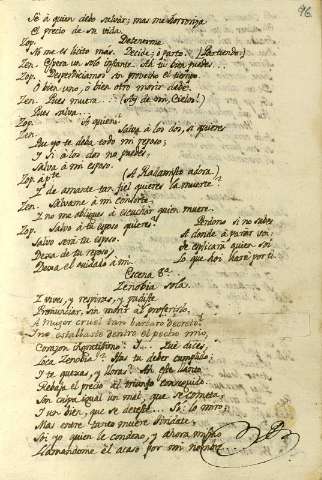 96.
Sé á quien debo salvar; mas me horroriza
El precio de su vida.
Zop. Detenerme
No me es licito mas. Decide; ó parto. (Partiendo)
Zen. Espera un solo instante. Ah tu bien puedes...
Zop. Desperdiciamos sin provecho el tiempo.
O bien uno, ó bien otro morir debe.
Zen. Pues muera... (Ay de mi, Cielos!)
Pues salva...
Zop. A quien?
Zen. Salva á los dos, si quieres
Que yo te deba todo mi reposo;
Y si á los dos no puedes,
Salva á mi esposo.
Zop. (A Radamisto adora)
Y de amante tan fiel quieres la muerte?
Zen. Salvame á mi consorte
Y no me obligues á escuchar quien muere.
Zop. Salvo á tu esposo quieres? Perdona si no sabes
Salvo será tu esposo. A donde á parar
Dexa de tu reposo, Te explicará quien soi
Dexa el cuidado á mi. Lo que hoi haré por ti.
Escena 8ª
Zenobia sola.
Y vives, y respiras, y pudiste
Pronunciar, sin morir al proferirlo,
A muger cruel tan barbaro decreto!
Y no estallaste dentro el pecho mio,
Corazon Ha! Qué dices,
Loca Zenobia? Has tu deber cumplido;
Y te quexas, y lloras? Ah este llanto
Rebaja el precio al triunfo conseguido.
Son culpa igual un mal, que se cometa,
Y un bien, que se deteste... Si: lo miro;
Mas entre tanto muere
Soi yo quien le condeno, y ahora mismo
Llamandome él acaso por mi nombre...